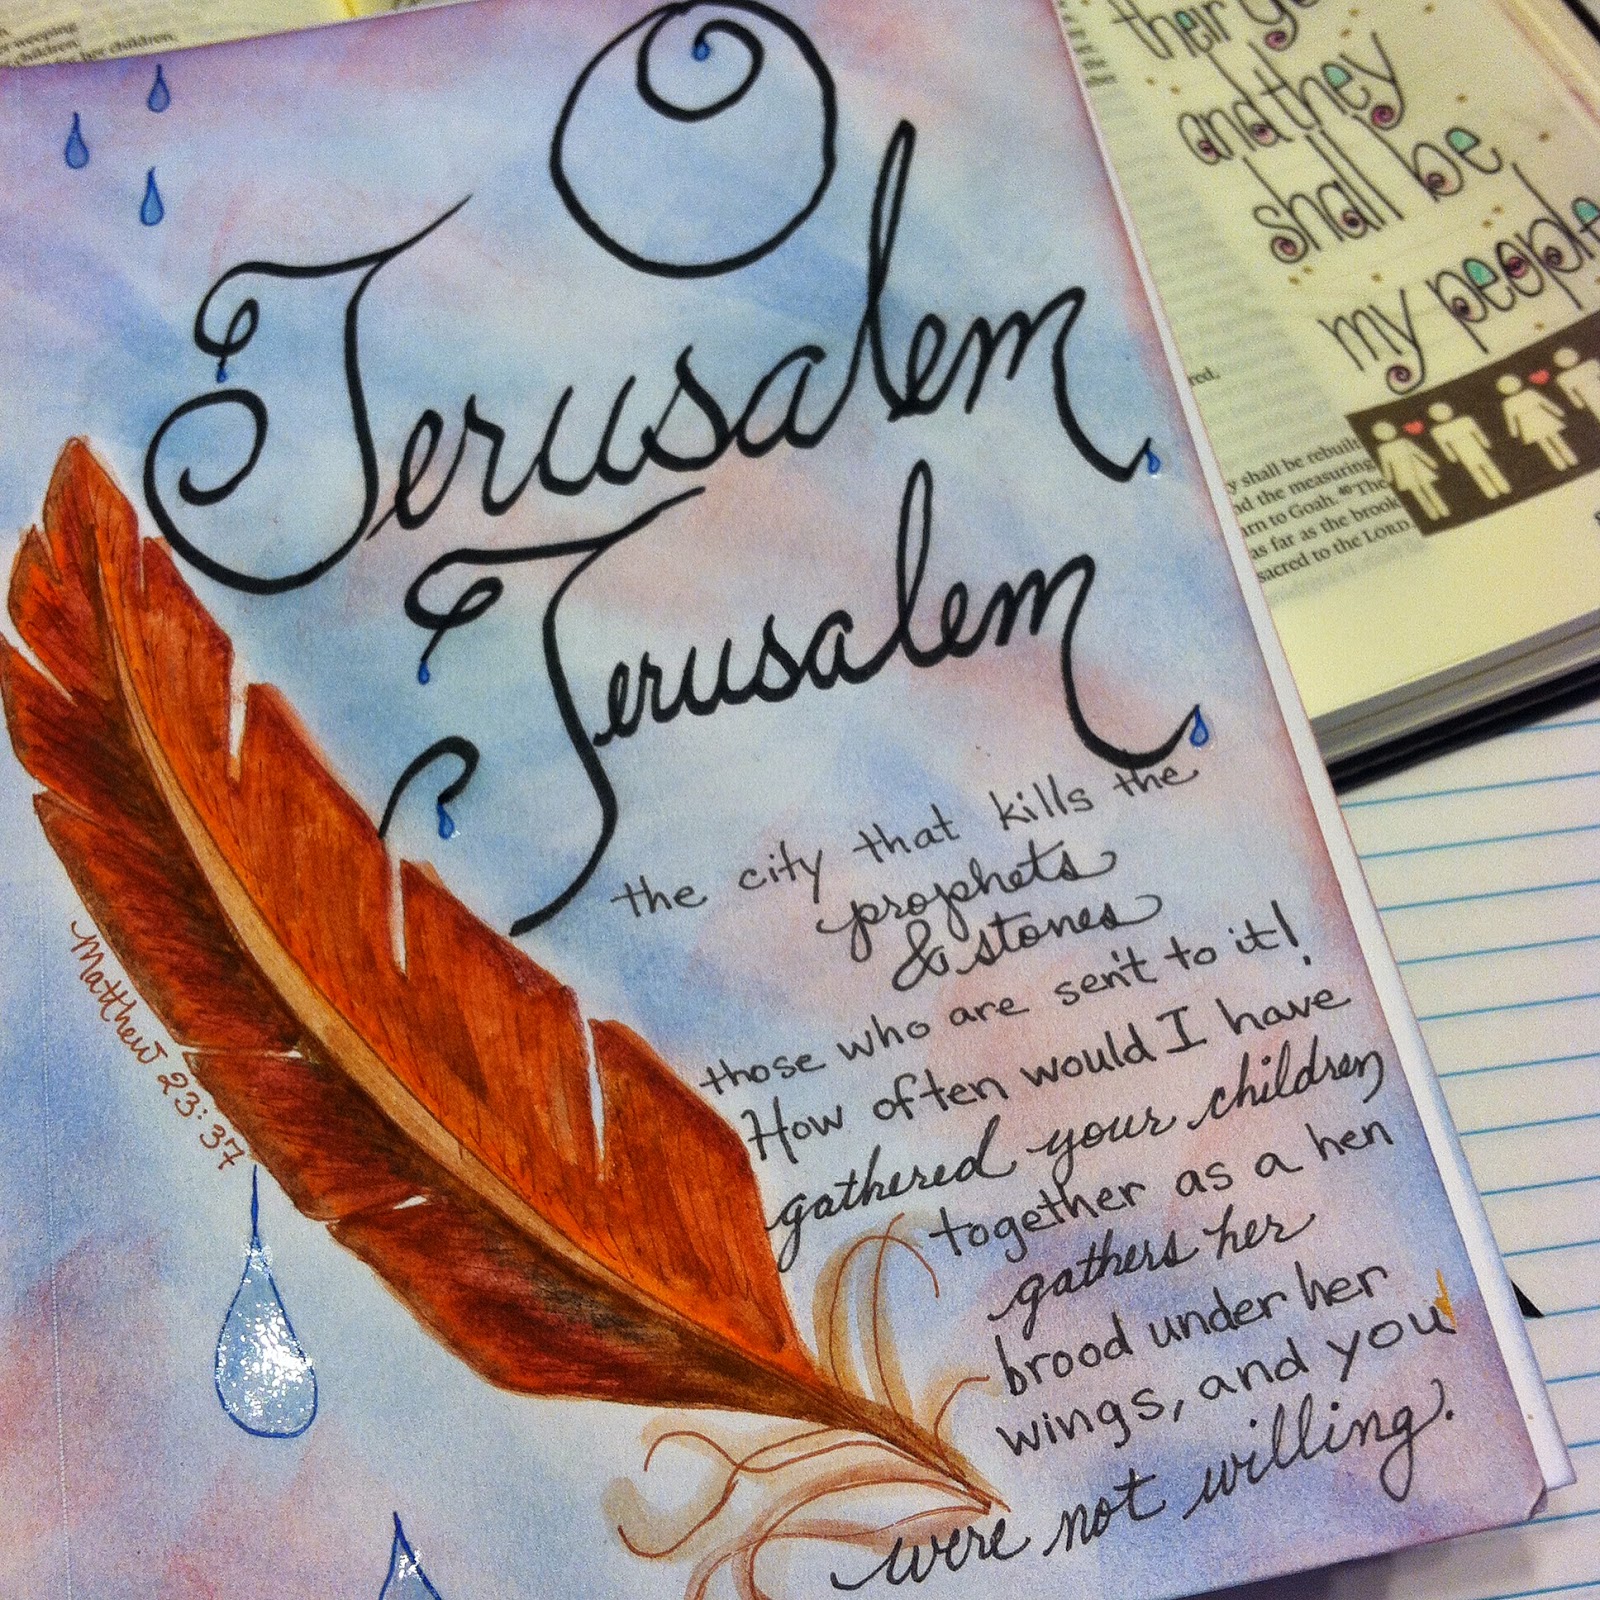 O
Jerusalem
Jerusalem
the city that kills the
prophets
& stones
those who are sent to it!
How often would I have
gathered your children
together as a hen
gathers her
brood under her
wings, and you
were not willing.
Matthew 23:37
weeping
children
her children.
their
and they
shall be
my people
red,
shall be rebuilt
and the measuring
urn to Goah. 40 The
as far as the brook
sacred to the LORD